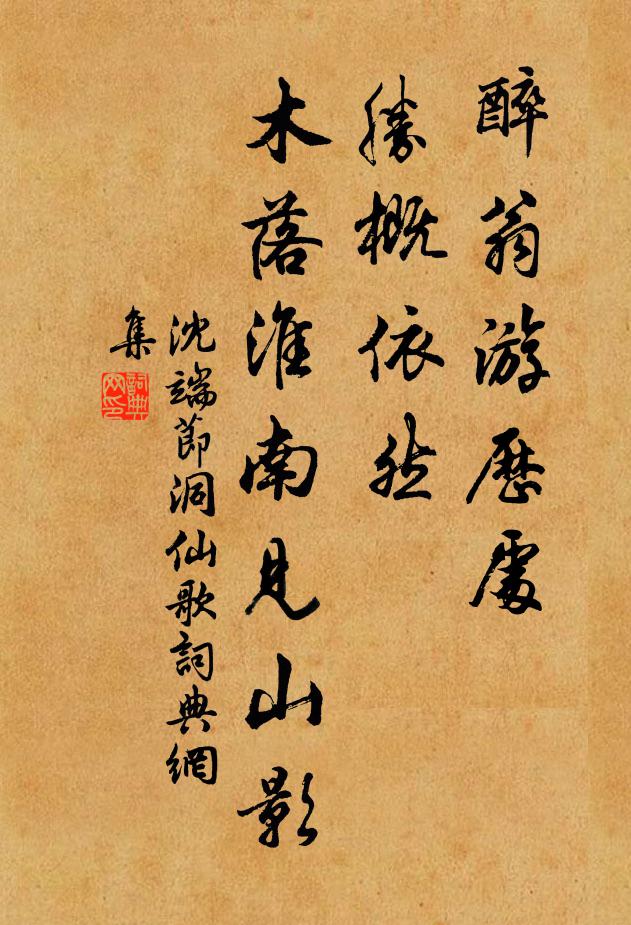 醉翁游歷處
勝概依然
木落淮南見山影
沈端節洞仙歌詞典網
集
詞典
网印